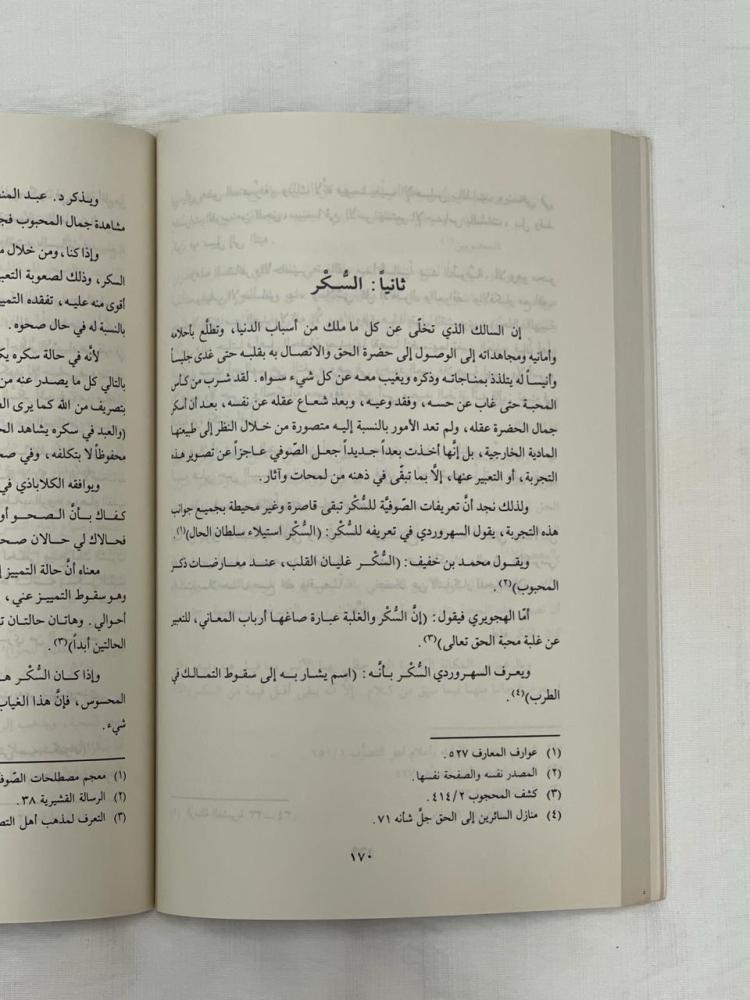 ثانياً: السُّكْر
إن السالك الذي تخلّى عن كل ما ملك من أسباب الدنيا، وتطلَّع بأحلامه
وأمانيه ومجاهداته إلى الوصول إلى حضرة الحق والاتصال به بقلبه حتى غدى جليساً
وأنيساً له يتلذذ بمناجاته وذكره ويغيب معه عن كل شيء سواه. لقد شرب من كأس
المحبة حتى غاب عن حسه، وفقد وعيه، وبعد شعاع عقله عن نفسه، بعد أن أسكر
جمال الحضرة عقله، ولم تعد الأمور بالنسبة إليه متصورة من خلال النظر إلى طبيعتها
المادية الخارجية، بل إنَّها أخذت بعداً جديداً جعل الصّوفي عاجزاً عن تصوير هذه
التجربة، أو التعبير عنها، إلَّا بما تبقّى في ذهنه من لمحات وآثار.
ولذلك نجد أنَّ تعريفات الصّوفيَّة للسُّكر تبقى قاصرة وغير محيطة بجميع جوانب
هذه التجربة، يقول السهروردي في تعريفه للسُّكر: (السُّكر استيلاء سلطان الحال)(١).
ويقول محمد بن خفيف: (السُّكْر غليان القلب، عند معارضات ذكر
المحبوب)(٢).
أمّا الهجويري فيقول: (إنَّ السُّكر والغلبة عبارة صاغها أرباب المعاني، للتعبير
عن غلبة محبة الحق تعالى)(٣).
ويعرف السهروردي السُّكر بأنَّه: (اسم يشار به إلى سقوط التمالك في
الطرب)(٤).
(١) عوارف المعارف ٥٢٧.
(٢) المصدر نفسه والصفحة نفسها.
(٣) كشف المحجوب ٤١٤/٢.
(٤) منازل السائرين إلى الحق جلَّ شأنه ٧١.
١٧٠
ويذكر د. عبد
مشاهدة جمال المحبوب
وإذا كنا، ومن خلال
السكر، وذلك لصعوبة
أقوى منه عليه، تفقده
بالنسبة له في حال صحوه.
لأنَّه في حالة سكره
بالتالي كل ما يصدر عنه من
بتصريف من الله كما يرى
(والعبد في سكره يشاهد
محفوظاً لا بتكلفه، وفي
ويوافقه الكلاباذي في
كفاك بأنَّ الصحو
فحالاك لي حالان
معناه أنَّ حالة التمييز
وهو سقوط التمييز عني،
أحوالي. وهاتان حالتان
الحالتين أبداً)(٣).
وإذا كان السُّكْر
المحسوس، فإنَّ هذا
شيء.
(١) معجم مصطلحات
(٢) الرسالة القشيرية ٣٨.
(٣) التعرف لمذهب أهل